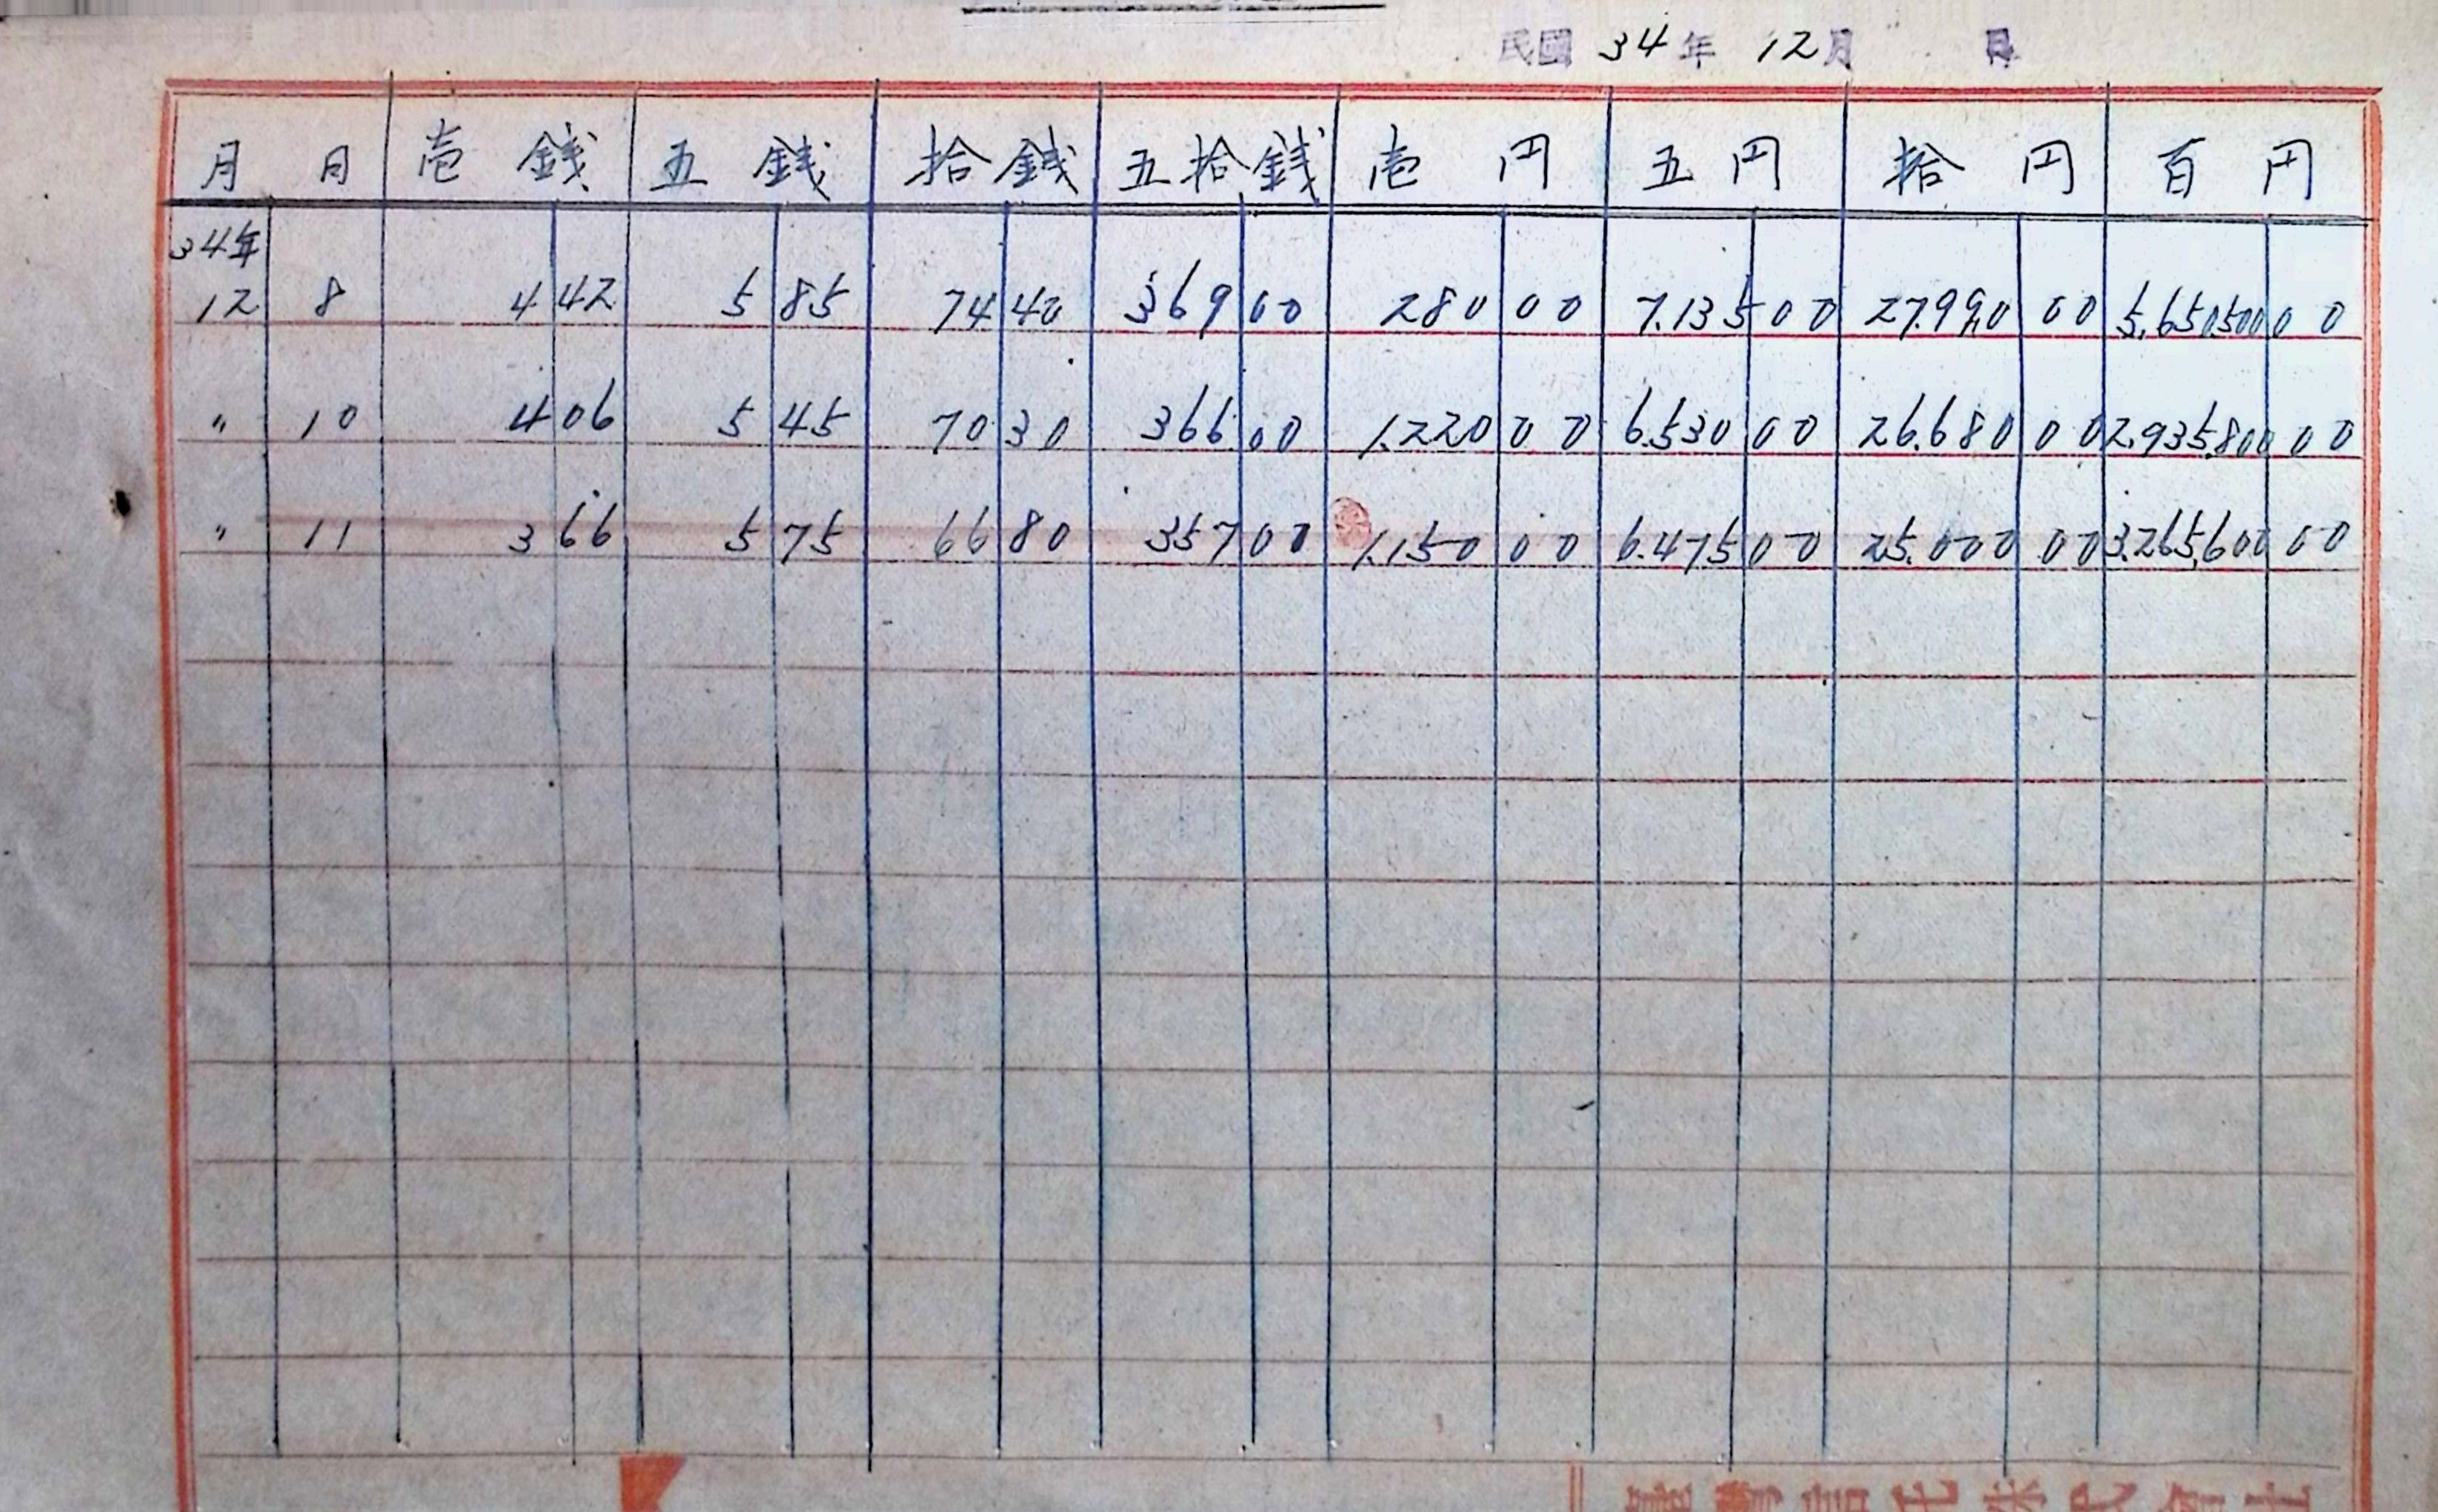 民國 34 年 12 月 日
月 日 壱 銭 五 銭 拾 銭 五拾銭 壱 円 五 円 拾 円 百 円
34年
12 8 4 42 5 85 74 40 369 00 280 00 7.135 00 27.990 00 5,650,500 00
〃 10 4 06 5 45 70 30 366 00 1.220 00 6.530 00 26.680 00 2.935,800 00
〃 11 3 66 5 75 66 80 357 00 1.150 00 6.475 00 25.000 00 3.265,600 00
株式會社